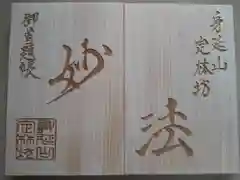 身延山
定林坊
妙法
御首題帳